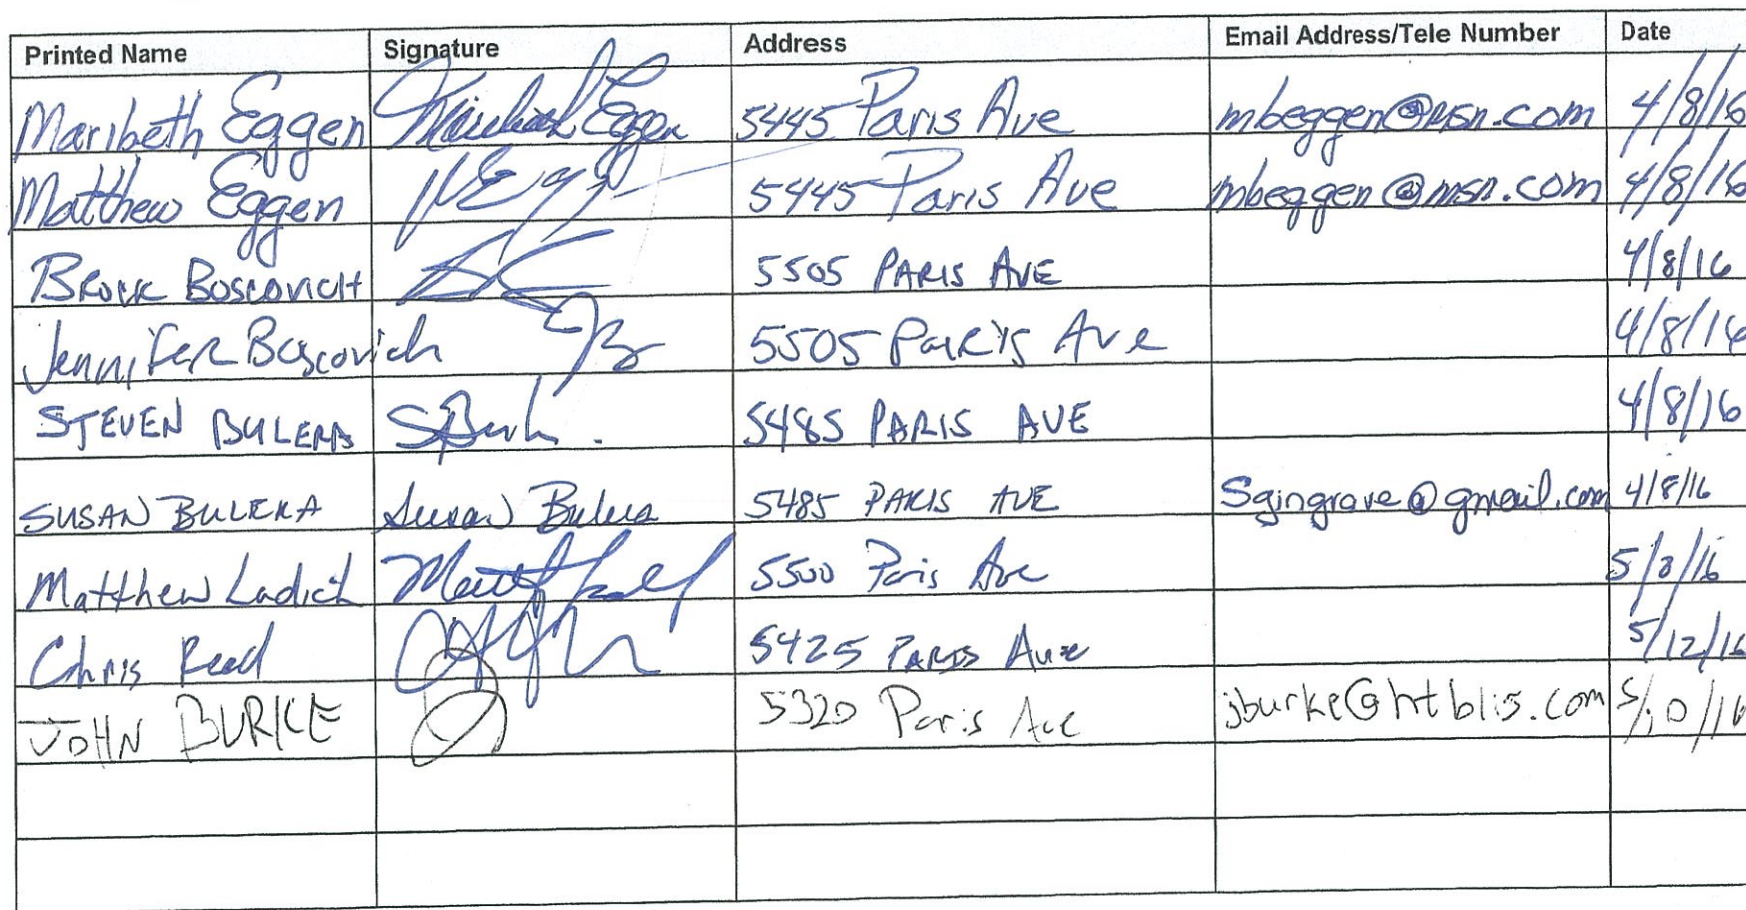 Printed Name Signature Address Email Address/Tele Number Date
Maribeth Eggen Maribeth Eggen 5445 Paris Ave mbeggen@msn.com 4/8/16
Matthew Eggen 5445 Paris Ave mbeggen@msn.com 4/8/16
Brock Boscovich 5505 PARIS AVE 4/8/16
Jennifer Boscovich JB 5505 Paris Ave 4/8/16
STEVEN BULERA 5485 PARIS AVE 4/8/16
SUSAN BULERA Susan Bulera 5485 PARIS AVE Sgingrave@gmail.com 4/8/16
Matthew Ladich 5500 Paris Ave
Chris Reed 5425 PARIS Ave 5/12/16
JOHN BURKE 5320 Paris Ave jburke@htblis.com 5/10/16